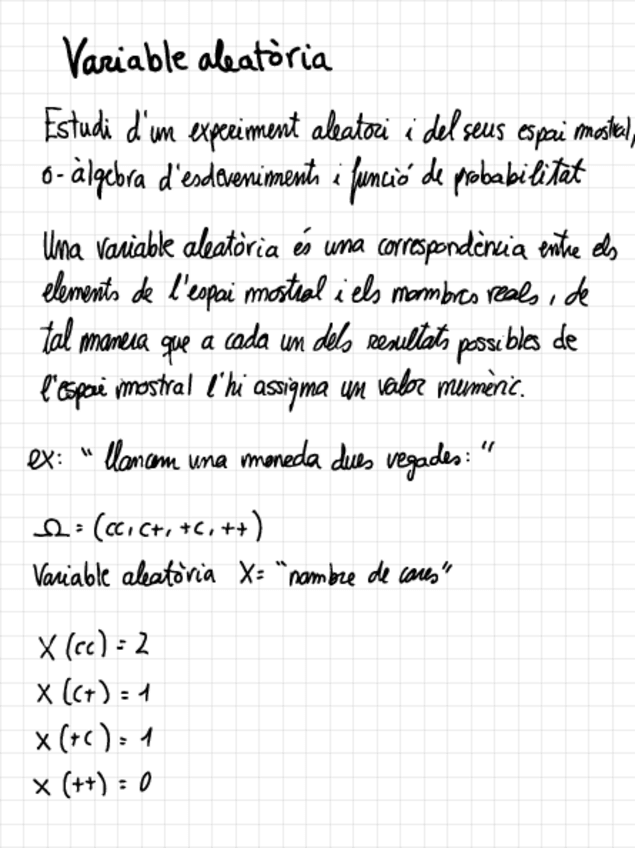 Variable aleatòria
Estudi d'un experiment aleatori i del seus espai mostral,
σ-àlgebra d'esdeveniments i funció de probabilitat
Una variable aleatòria és una correspondència entre els
elements de l'espai mostral i els nombres reals, de
tal manera que a cada un dels resultats possibles de
l'espai mostral l'hi assigna un valor numèric.
ex: "llancem una moneda dues vegades:"
Ω = (cc, c+, +c, ++)
Variable aleatòria X= "nombre de cares"
X (cc) = 2
X (c+) = 1
X (+c) = 1
X (++) = 0